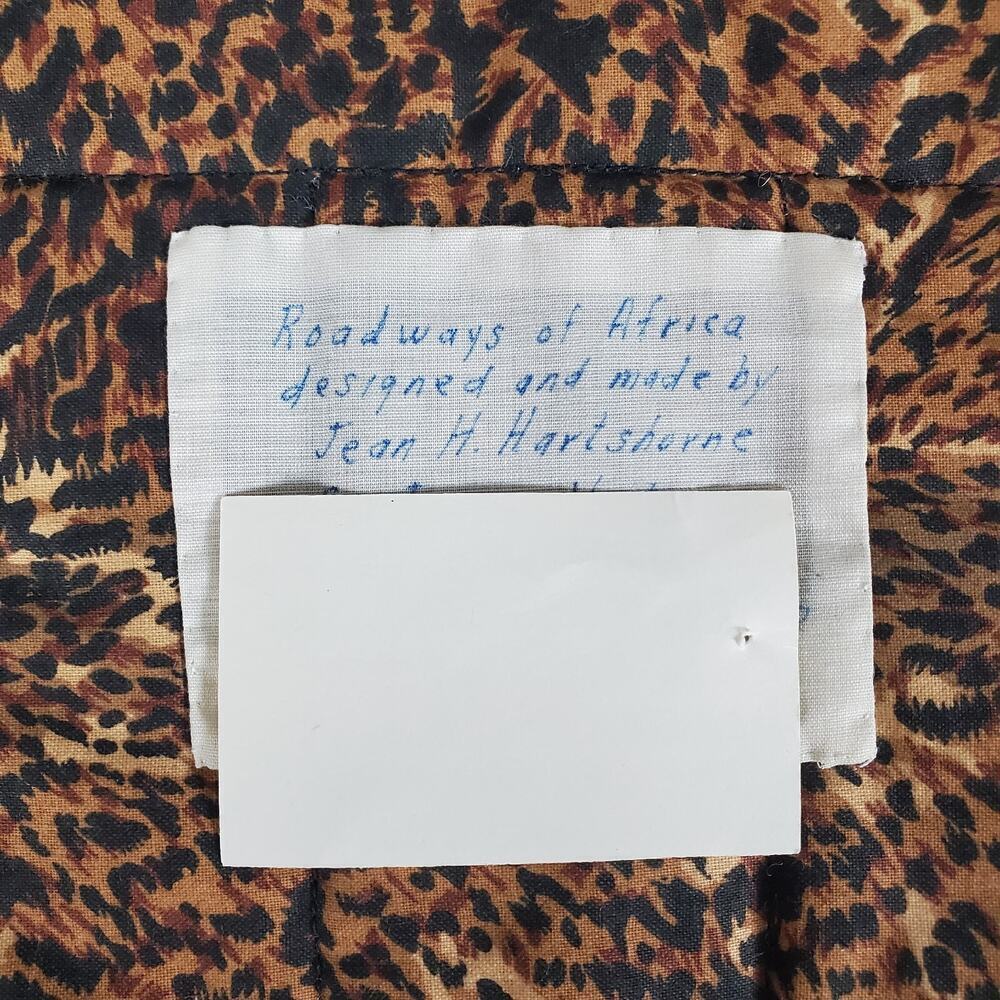 Roadways of Africa
designed and made by
Jean H. Hartshorne